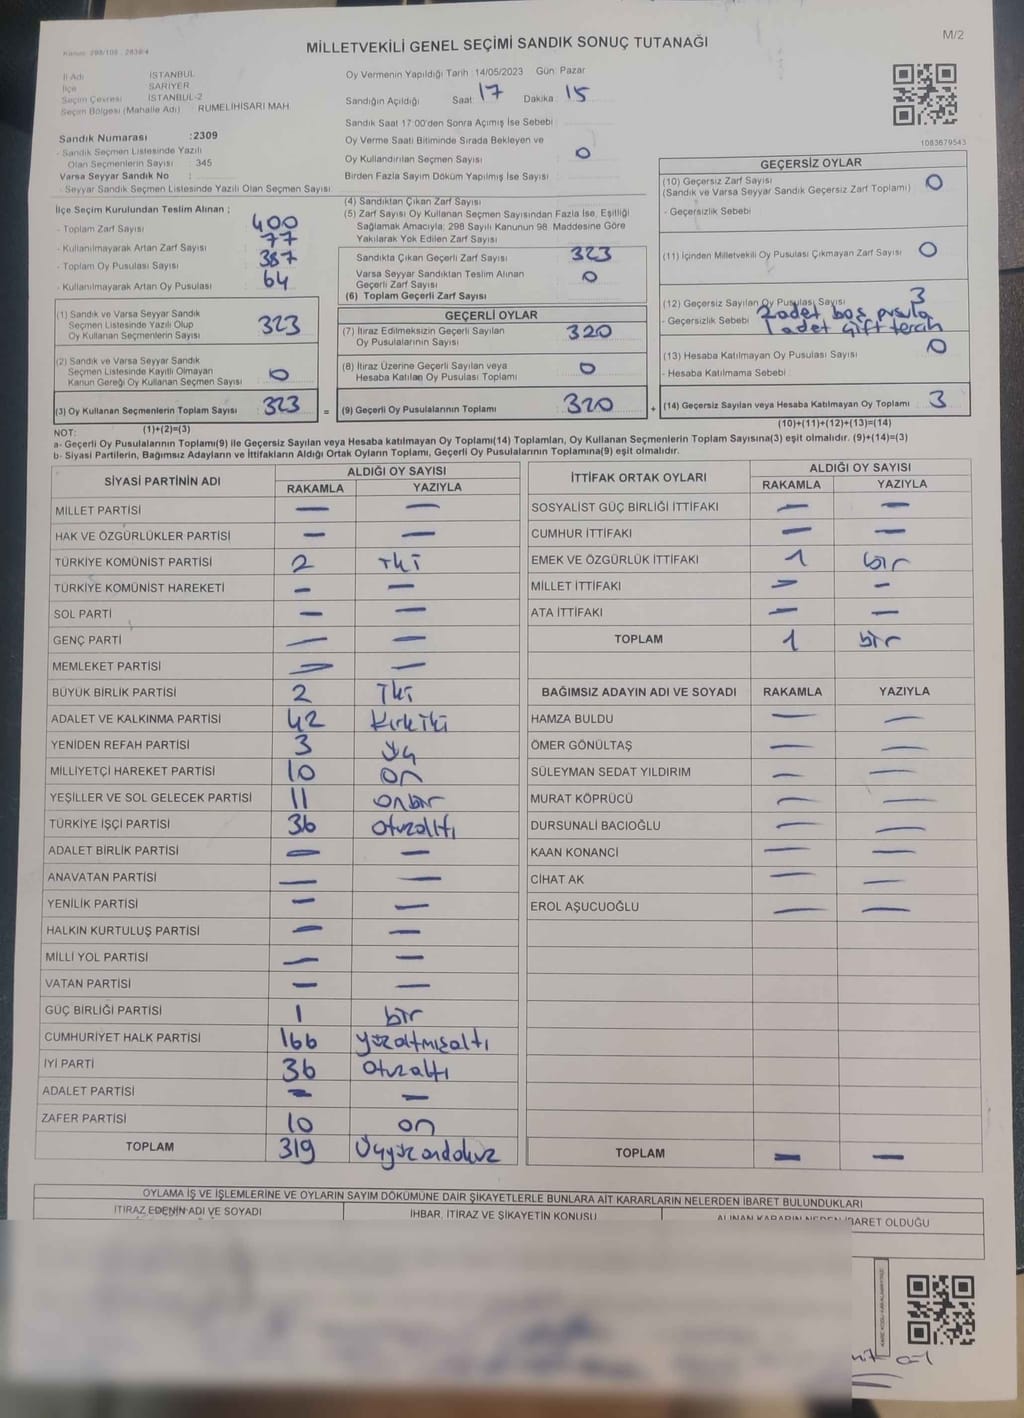 M/2
Kanun: 298/105 , 2839/4
MİLLETVEKİLİ GENEL SEÇİMİ SANDIK SONUÇ TUTANAĞI
İl Adı İSTANBUL
İlçe SARIYER
Seçim Çevresi İSTANBUL-2
Seçim Bölgesi (Mahalle Adı) RUMELİHİSARI MAH.
Sandık Numarası :2309
- Sandık Seçmen Listesinde Yazılı
Olan Seçmenlerin Sayısı : 345
Varsa Seyyar Sandık No :
- Seyyar Sandık Seçmen Listesinde Yazılı Olan Seçmen Sayısı
Oy Vermenin Yapıldığı Tarih :14/05/2023 Gün: Pazar
Sandığın Açıldığı Saat: 17 Dakika: 15
Sandık Saat 17:00'den Sonra Açımış İse Sebebi :
Oy Verme Saati Bitiminde Sırada Bekleyen ve
Oy Kullandırılan Seçmen Sayısı : 0
Birden Fazla Sayım Döküm Yapılmış İse Sayısı :
1083679543
İlçe Seçim Kurulundan Teslim Alınan ;
- Toplam Zarf Sayısı 400
- Kullanılmayarak Artan Zarf Sayısı 77
- Toplam Oy Pusulası Sayısı 387
- Kullanılmayarak Artan Oy Pusulası 64
(1) Sandık ve Varsa Seyyar Sandık
Seçmen Listesinde Yazılı Olup
Oy Kullanan Seçmenlerin Sayısı 323
(2) Sandık ve Varsa Seyyar Sandık
Seçmen Listesinde Kayıtlı Olmayan
Kanun Gereği Oy Kullanan Seçmen Sayısı 0
(3) Oy Kullanan Seçmenlerin Toplam Sayısı 323 =
(1)+(2)=(3)
(4) Sandıktan Çıkan Zarf Sayısı
(5) Zarf Sayısı Oy Kullanan Seçmen Sayısından Fazla İse, Eşitliği
Sağlamak Amacıyla; 298 Sayılı Kanunun 98. Maddesine Göre
Yakılarak Yok Edilen Zarf Sayısı
Sandıkta Çıkan Geçerli Zarf Sayısı 323
Varsa Seyyar Sandıktan Teslim Alınan
Geçerli Zarf Sayısı 0
(6) Toplam Geçerli Zarf Sayısı
GEÇERLİ OYLAR
(7) İtiraz Edilmeksizin Geçerli Sayılan
Oy Pusulalarının Sayısı 320
(8) İtiraz Üzerine Geçerli Sayılan veya
Hesaba Katılan Oy Pusulası Toplamı 0
(9) Geçerli Oy Pusulalarının Toplamı 320 +
GEÇERSİZ OYLAR
(10) Geçersiz Zarf Sayısı 0
(Sandık ve Varsa Seyyar Sandık Geçersiz Zarf Toplamı)
- Geçersizlik Sebebi
(11) İçinden Milletvekili Oy Pusulası Çıkmayan Zarf Sayısı 0
(12) Geçersiz Sayılan Oy Pusulası Sayısı 3
- Geçersizlik Sebebi 2 adet boş pusula
1 adet çift tercih
(13) Hesaba Katılmayan Oy Pusulası Sayısı 0
- Hesaba Katılmama Sebebi
(14) Geçersiz Sayılan veya Hesaba Katılmayan Oy Toplamı 3
(10)+(11)+(12)+(13)=(14)
NOT:
a- Geçerli Oy Pusulalarının Toplamı(9) ile Geçersiz Sayılan veya Hesaba katılmayan Oy Toplamı(14) Toplamları, Oy Kullanan Seçmenlerin Toplam Sayısına(3) eşit olmalıdır. (9)+(14)=(3)
b- Siyasi Partilerin, Bağımsız Adayların ve İttifakların Aldığı Ortak Oyların Toplamı, Geçerli Oy Pusulalarının Toplamına(9) eşit olmalıdır.
SİYASİ PARTİNİN ADI ALDIĞI OY SAYISI
RAKAMLA YAZIYLA
MİLLET PARTİSİ — —
HAK VE ÖZGÜRLÜKLER PARTİSİ — —
TÜRKİYE KOMÜNİST PARTİSİ 2 iki
TÜRKİYE KOMÜNİST HAREKETİ — —
SOL PARTİ — —
GENÇ PARTİ — —
MEMLEKET PARTİSİ — —
BÜYÜK BİRLİK PARTİSİ 2 iki
ADALET VE KALKINMA PARTİSİ 42 Kırkiki
YENİDEN REFAH PARTİSİ 3 üç
MİLLİYETÇİ HAREKET PARTİSİ 10 on
YEŞİLLER VE SOL GELECEK PARTİSİ 11 onbir
TÜRKİYE İŞÇİ PARTİSİ 36 otuzaltı
ADALET BİRLİK PARTİSİ — —
ANAVATAN PARTİSİ — —
YENİLİK PARTİSİ — —
HALKIN KURTULUŞ PARTİSİ — —
MİLLİ YOL PARTİSİ — —
VATAN PARTİSİ — —
GÜÇ BİRLİĞİ PARTİSİ 1 bir
CUMHURİYET HALK PARTİSİ 166 yüzaltmışaltı
İYİ PARTİ 36 otuzaltı
ADALET PARTİSİ — —
ZAFER PARTİSİ 10 on
TOPLAM 319 Üçyüzondokuz
İTTİFAK ORTAK OYLARI ALDIĞI OY SAYISI
RAKAMLA YAZIYLA
SOSYALİST GÜÇ BİRLİĞİ İTTİFAKI — —
CUMHUR İTTİFAKI — —
EMEK VE ÖZGÜRLÜK İTTİFAKI 1 bir
MİLLET İTTİFAKI — —
ATA İTTİFAKI — —
TOPLAM 1 bir
BAĞIMSIZ ADAYIN ADI VE SOYADI RAKAMLA YAZIYLA
HAMZA BULDU — —
ÖMER GÖNÜLTAŞ — —
SÜLEYMAN SEDAT YILDIRIM — —
MURAT KÖPRÜCÜ — —
DURSUNALİ BACIOĞLU — —
KAAN KONANCİ — —
CİHAT AK — —
EROL AŞUCUOĞLU — —
TOPLAM — —
OYLAMA İŞ VE İŞLEMLERİNE VE OYLARIN SAYIM DÖKÜMÜNE DAİR ŞİKAYETLERLE BUNLARA AİT KARARLARIN NELERDEN İBARET BULUNDUKLARI
İTİRAZ EDENİN ADI VE SOYADI İHBAR, İTİRAZ VE ŞİKAYETİN KONUSU ALINAN KARARIN NEDEN İBARET OLDUĞU